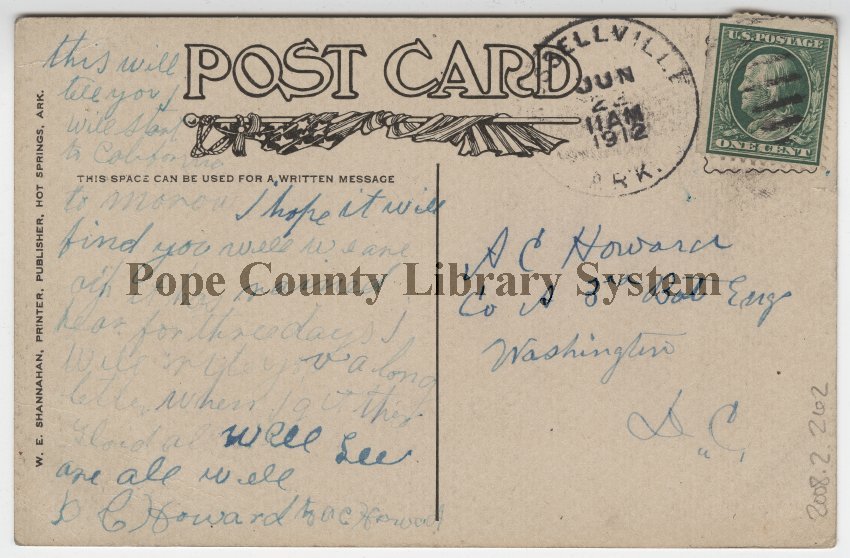 POST CARD
THIS SPACE CAN BE USED FOR A WRITTEN MESSAGE
W. E. SHANNAHAN, PRINTER, PUBLISHER, HOT SPRINGS, ARK.
this will
tell you I
will start
to California
to morow I hope it will
find you well we are
hear for three days I
will write you a long
letter when I git ther
well Lee
are all well
C Howard to A C Howard
SELLVILLE
JUN
11 AM
1912
ARK.
U.S. POSTAGE
ONE CENT
A C Howard
Co A 3rd Bat Eng
Washington
D.C.
Pope County Library System
2008.2.262